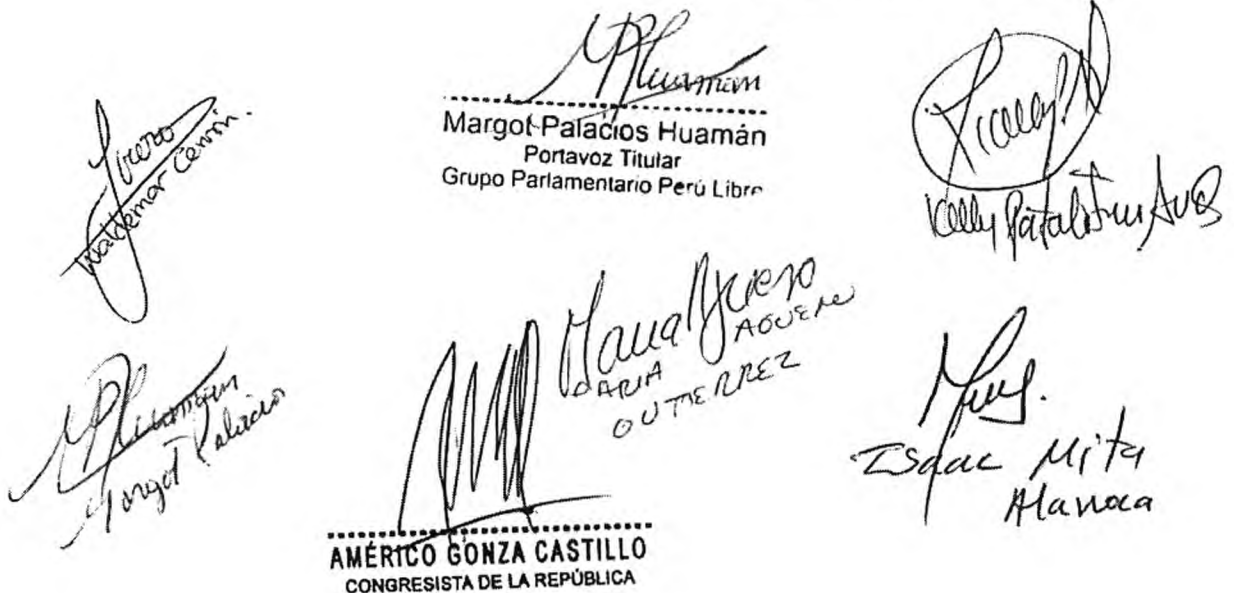 Waldemar Cerrón.
Margot Palacios Huamán
Portavoz Titular
Grupo Parlamentario Perú Libre
Kelly
Margot Palacios
MARIA AGUERO
GUTIERREZ
AMÉRICO GONZA CASTILLO
CONGRESISTA DE LA REPÚBLICA
Isaac Mita
Alanoca